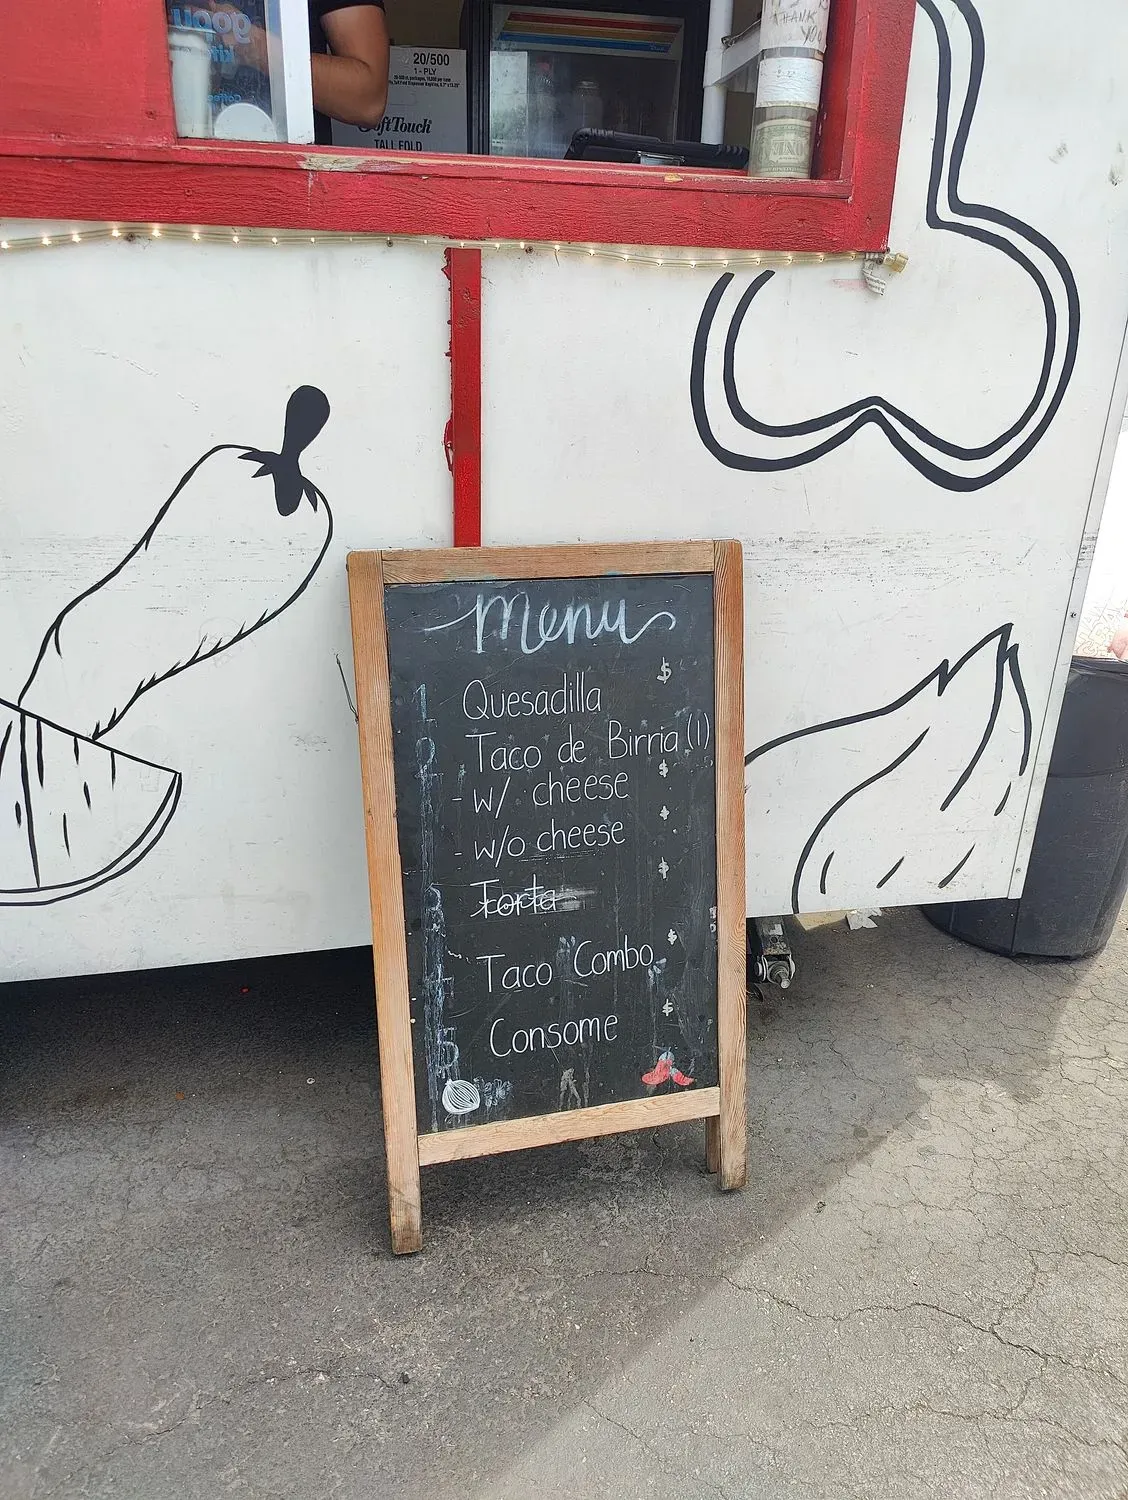 THANK
YOU
20/500
1-PLY
SoftTouch
TALL FOLD
Menu
$
1 Quesadilla
2 Taco de Birria (1)
- w/ cheese $
- w/o cheese $
$
3 Torta
$
- Taco Combo
$
5 Consome